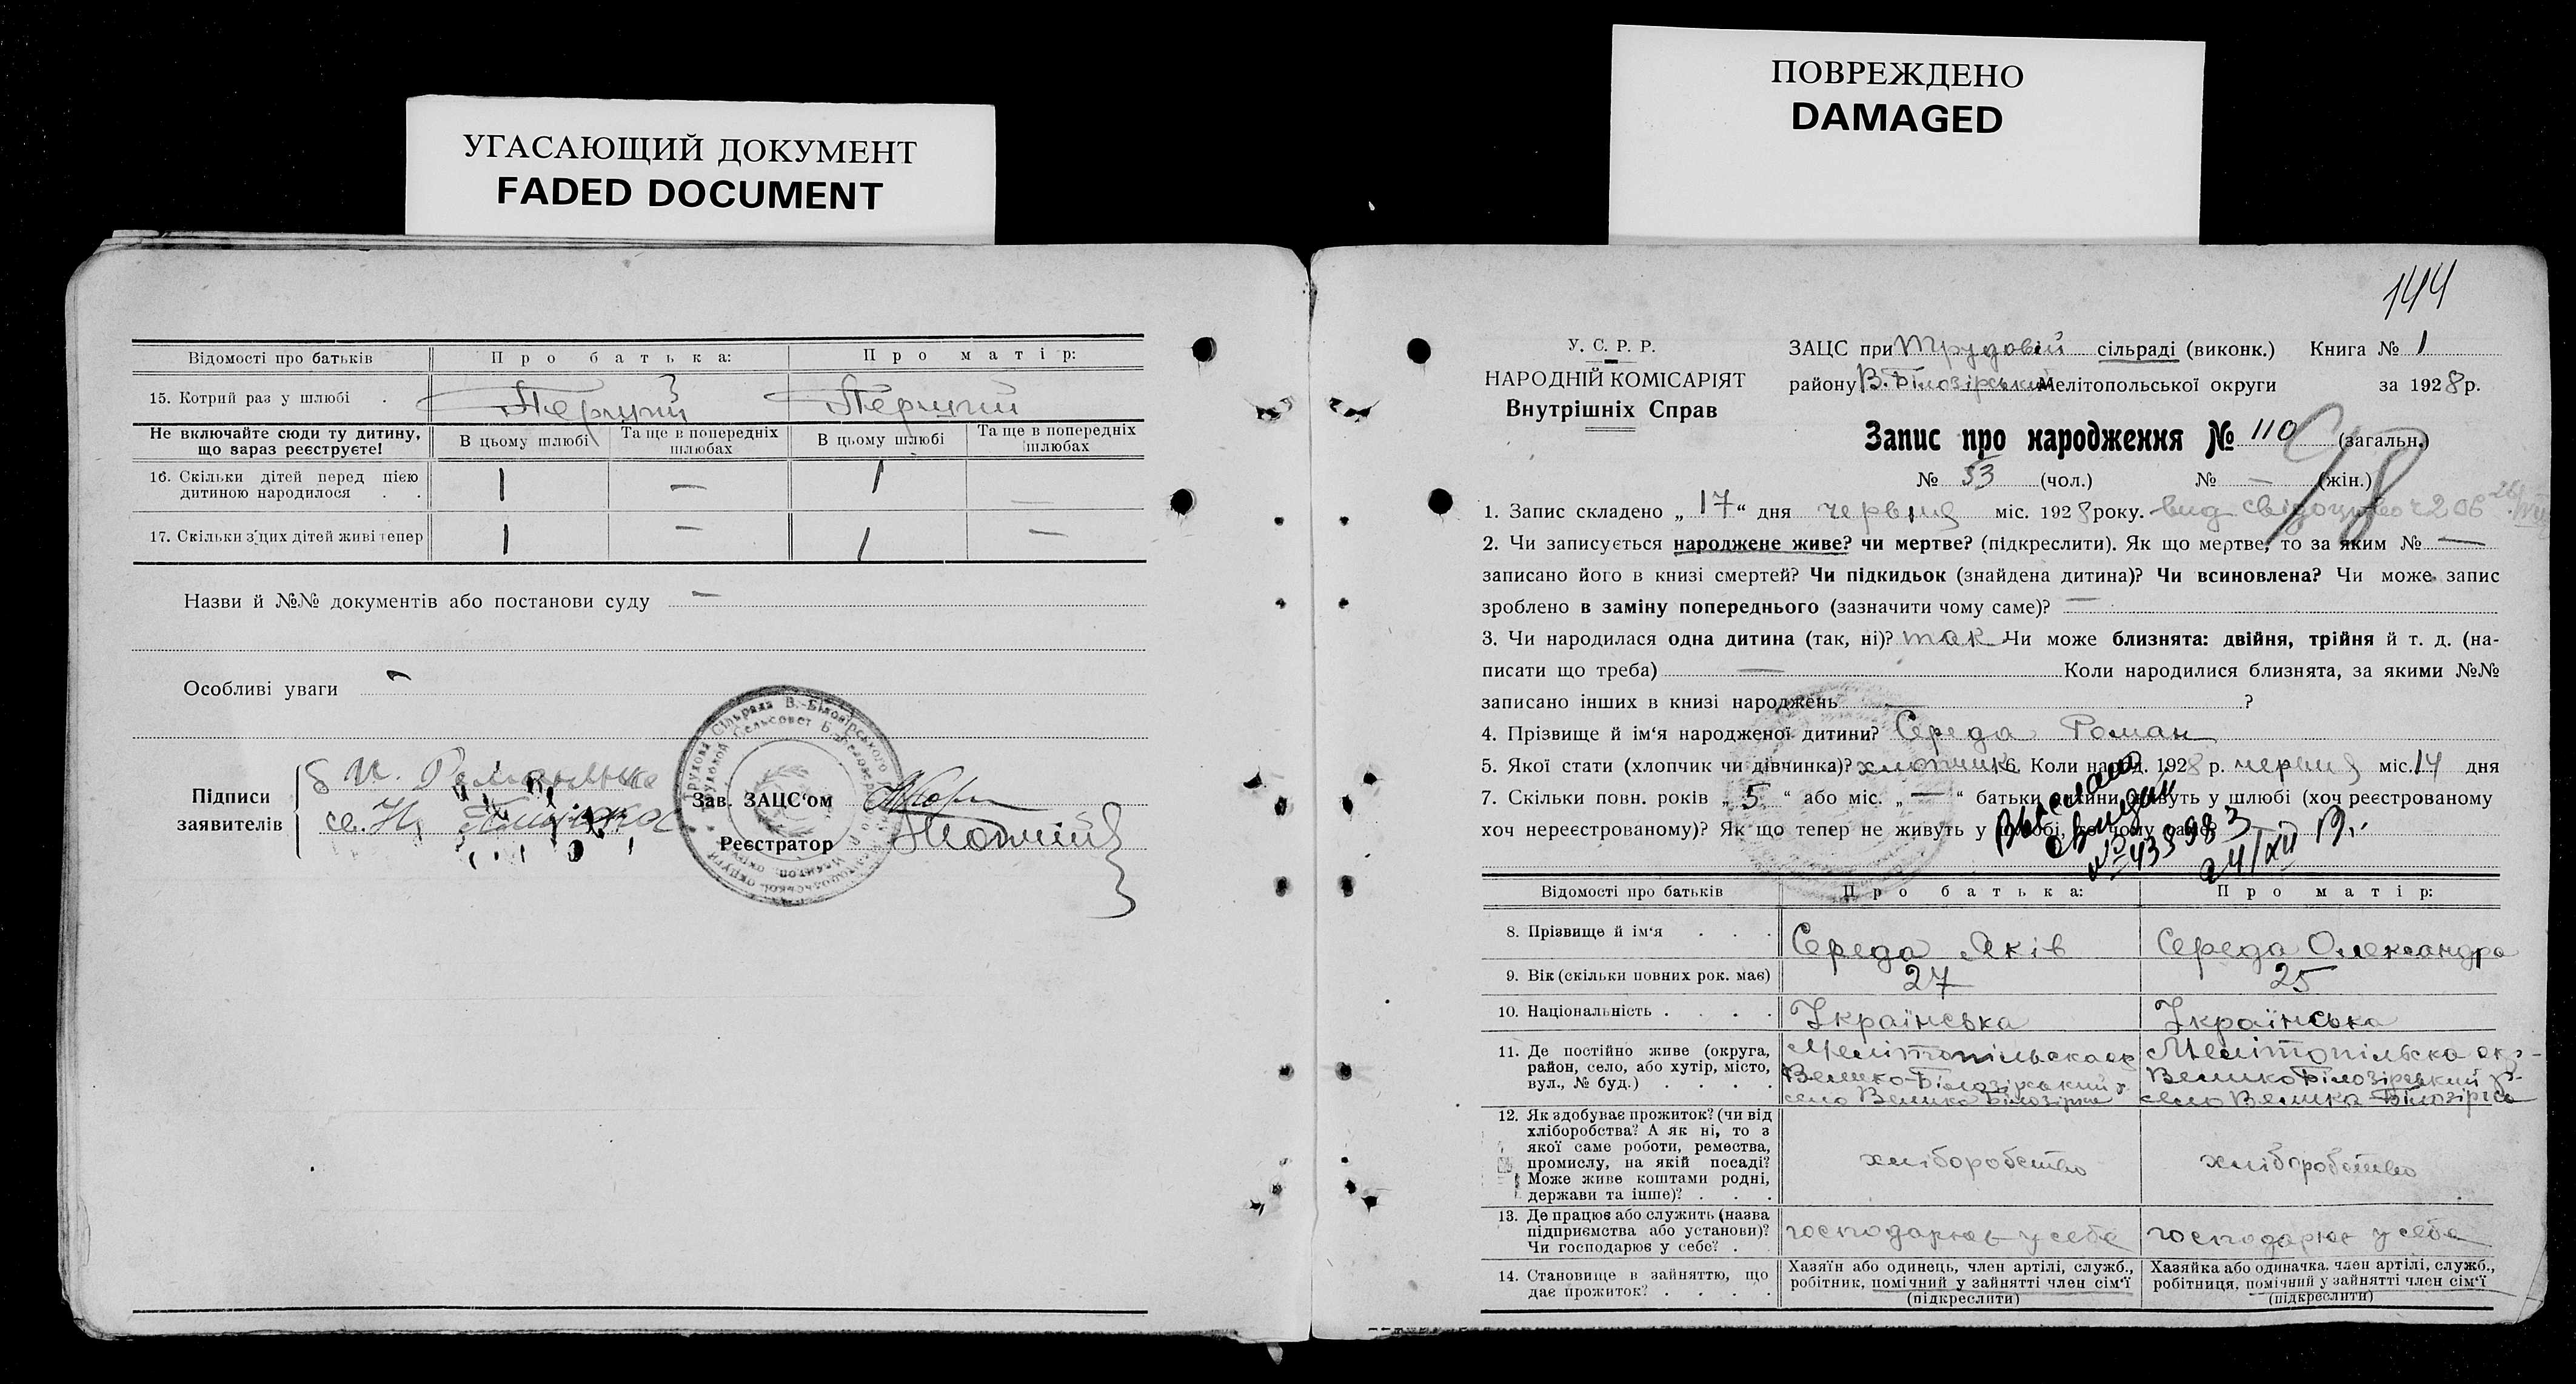 УГАСАЮЩИЙ ДОКУМЕНТ
FADED DOCUMENT
Відомості про батьків
Про батька:
Про матір:
15. Котрий раз у шлюбі
Перший
Перший
Не включайте сюди ту дитину, що зараз реєструєте!
В цьому шлюбі
Та ще в попередніх шлюбах
В цьому шлюбі
Та ще в попередніх шлюбах
16. Скільки дітей перед цією дитиною народилося . .
1
—
1
—
17. Скільки з цих дітей живі тепер
1
—
1
—
Назви й №№ документів або постанови суду —
Особливі уваги
Підписи заявителів
Зав. ЗАЦС‘ом
Реєстратор
ПОВРЕЖДЕНО
DAMAGED
144
У. С. Р. Р.
НАРОДНІЙ КОМІСАРІЯТ
Внутрішніх Справ
ЗАЦС при Трудовій сільраді (виконк.) Книга № 1
району В. Білозірський Мелітопольської округи за 1928 р.
Запис про народження № 110 (загальн.)
№ 53 (чол.) № — (жін.)
1. Запис складено „17“ дня червня міс. 1928 року.
2. Чи записується народжене живе? чи мертве? (підкреслити). Як що мертве, то за яким № —
записано його в книзі смертей? Чи підкидьок (знайдена дитина)? Чи всиновлена? Чи може запис
зроблено в заміну попереднього (зазначити чому саме)? —
3. Чи народилася одна дитина (так, ні)? так Чи може близнята: двійня, трійня й т. д. (на-
писати що треба) — Коли народилися близнята, за якими №№
записано інших в книзі народжень — ?
4. Прізвище й ім‘я народженої дитини? Середа Роман
5. Якої стати (хлопчик чи дівчинка)? хлопчик 6. Коли народ. 1928 р. червня міс. 14 дня
7. Скільки повн. років „5“ або міс. „—“ батьки дитини живуть у шлюбі (хоч реєстрованому
хоч нереєстрованому)? Як що тепер не живуть у шлюбі, то чому саме?
Відомості про батьків
Про батька:
Про матір:
8. Прізвище й ім‘я . . .
Середа Яків
Середа Олександра
9. Вік (скільки повних рок. має)
27
25
10. Національність . . . .
Українська
Українська
11. Де постійно живе (округа, район, село, або хутір, місто, вул., № буд.) . . . .
Мелітопільська ок
Велико-Білозірський р
село Велика Білозірка
Мелітопільська окр-
Велико Білозірський р-
село Велика Білозірка
12. Як здобуває прожиток? (чи від хліборобства? А як ні, то з якої саме роботи, ремества, промислу, на якій посаді? Може живе коштами родні, держави та інше)? . . .
хліборобство
хліборобство
13. Де працює або служить (назва підприємства або установи)? Чи господарює у себе? .
господарює у себе
господарює у себе
14. Становище в зайняттю, що дає прожиток? . . . .
Хазяїн або одинець, член артілі, служб., робітник, помічний у зайнятті член сім‘ї (підкреслити)
Хазяйка або одиначка, член артілі, служб., робітниця, помічний у зайнятті член сім‘ї (підкреслити)